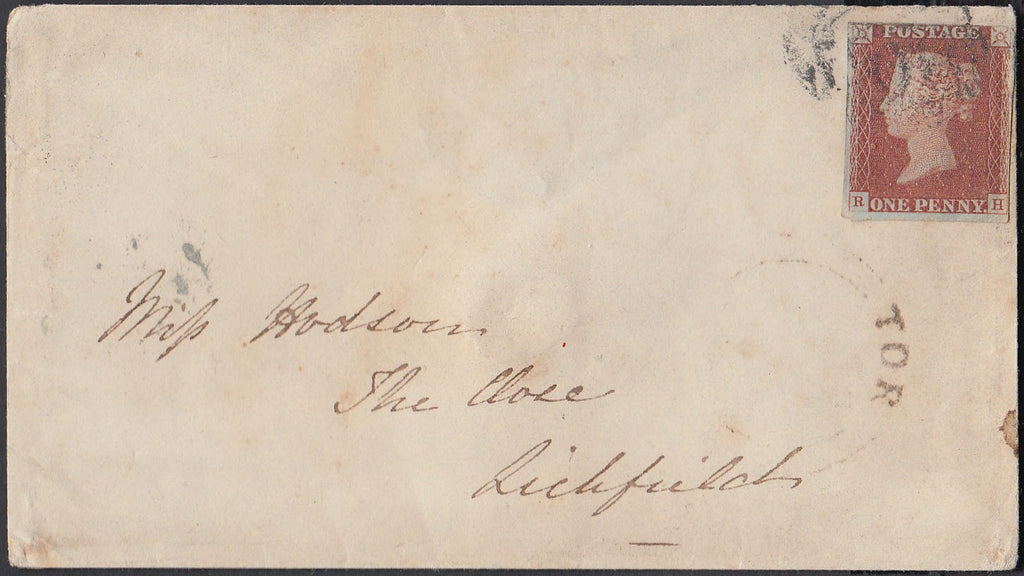 POSTAGE
R ONE PENNY. H
Miss Hodson
The Close
Lichfield
TOR